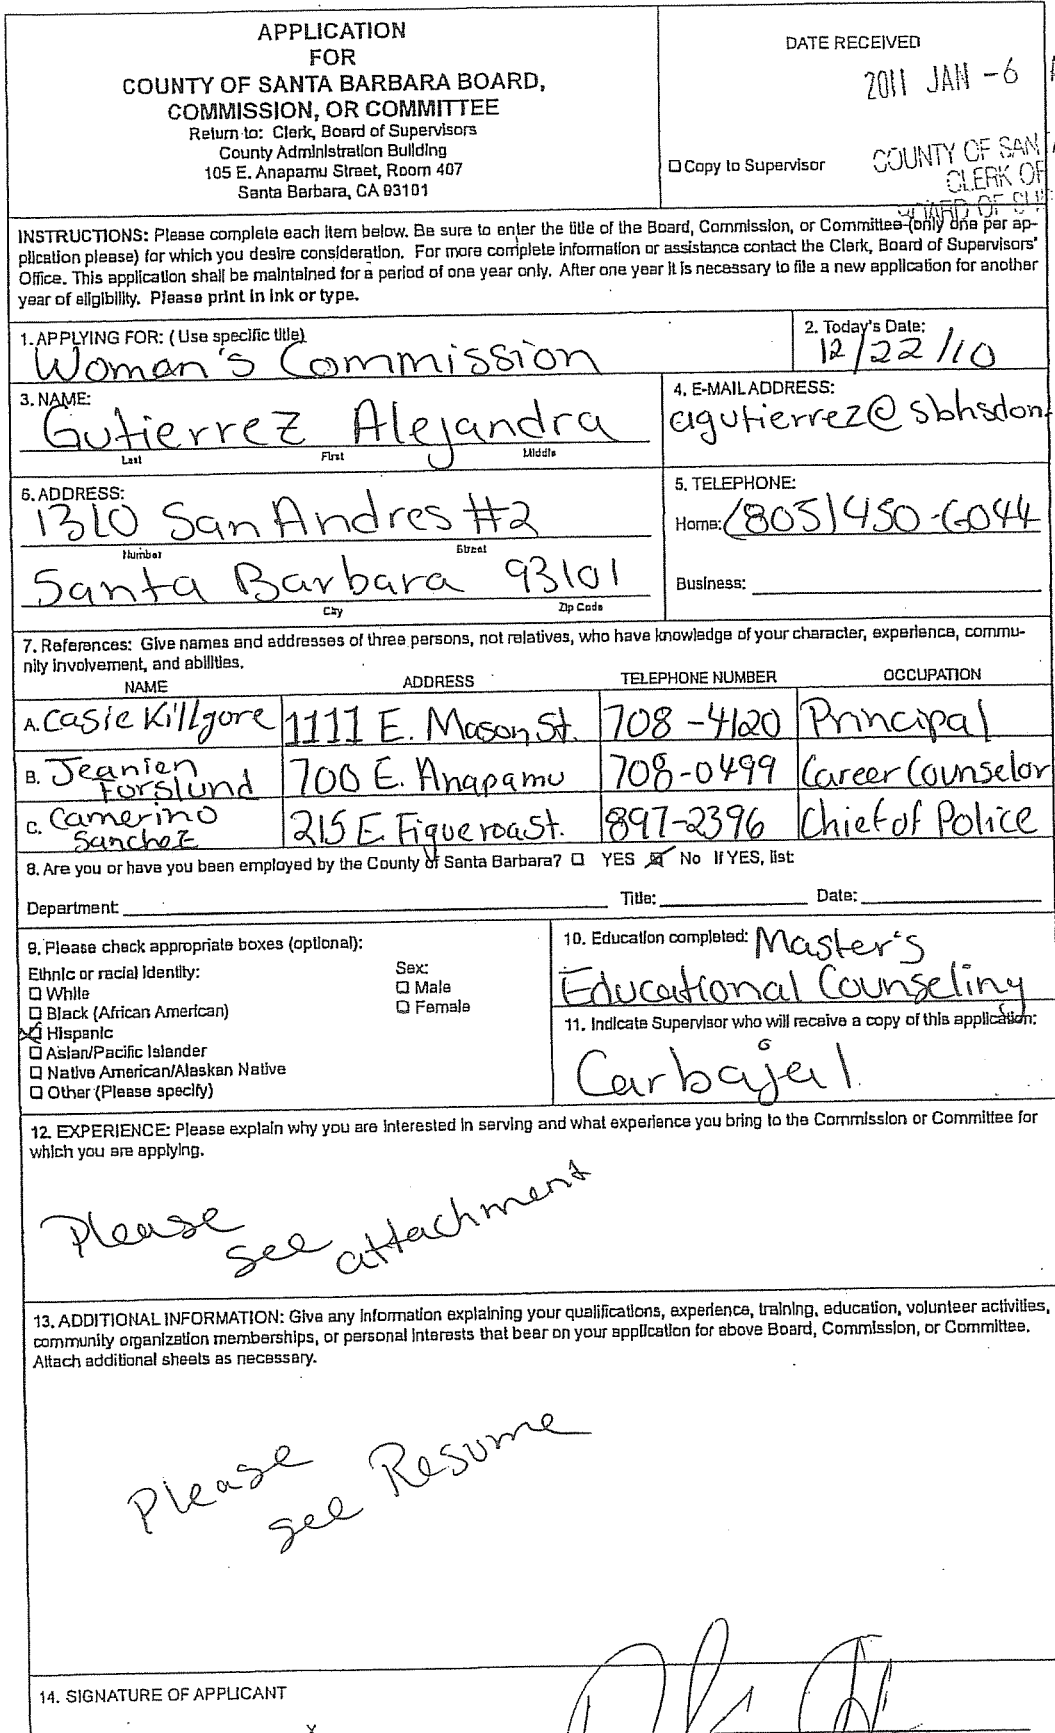 APPLICATION
FOR
COUNTY OF SANTA BARBARA BOARD,
COMMISSION, OR COMMITTEE
Return to: Clerk, Board of Supervisors
County Administration Building
105 E. Anapamu Street, Room 407
Santa Barbara, CA 93101
DATE RECEIVED
2011 JAN -6
☐ Copy to Supervisor
COUNTY OF SAN
CLERK OF
BOARD OF SUP
INSTRUCTIONS: Please complete each item below. Be sure to enter the title of the Board, Commission, or Committee (only one per ap-
plication please) for which you desire consideration. For more complete information or assistance contact the Clerk, Board of Supervisors'
Office. This application shall be maintained for a period of one year only. After one year it is necessary to file a new application for another
year of eligibility. Please print in ink or type.
1. APPLYING FOR: (Use specific title)
Woman's Commission
2. Today's Date:
12/22/10
3. NAME:
Gutierrez Alejandra
Last First Middle
4. E-MAIL ADDRESS:
agutierrez@sbhsdon
6. ADDRESS:
1310 San Andres #2
Number Street
Santa Barbara 93101
City Zip Code
5. TELEPHONE:
Home: (805) 450-6044
Business:
7. References: Give names and addresses of three persons, not relatives, who have knowledge of your character, experience, commu-
nity involvement, and abilities.
NAME ADDRESS TELEPHONE NUMBER OCCUPATION
A. Casie Killgore 1111 E. Mason St. 708-4120 Principal
B. Jeanien Forslund 700 E. Anapamu 708-0499 Career Counselor
C. Camerino Sanchez 215 E Figueroa St. 897-2396 Chief of Police
8. Are you or have you been employed by the County of Santa Barbara? ☐ YES ☒ No If YES, list:
Department: Title: Date:
9. Please check appropriate boxes (optional):
Ethnic or racial Identity:
☐ White
☐ Black (African American)
☒ Hispanic
☐ Asian/Pacific Islander
☐ Native American/Alaskan Native
☐ Other (Please specify)
Sex:
☐ Male
☐ Female
10. Education completed: Master's
Educational Counseling
11. Indicate Supervisor who will receive a copy of this application:
Carbajal
12. EXPERIENCE: Please explain why you are interested in serving and what experience you bring to the Commission or Committee for
which you are applying.
Please see attachment
13. ADDITIONAL INFORMATION: Give any information explaining your qualifications, experience, training, education, volunteer activities,
community organization memberships, or personal interests that bear on your application for above Board, Commission, or Committee.
Attach additional sheets as necessary.
Please see Resume
14. SIGNATURE OF APPLICANT
X